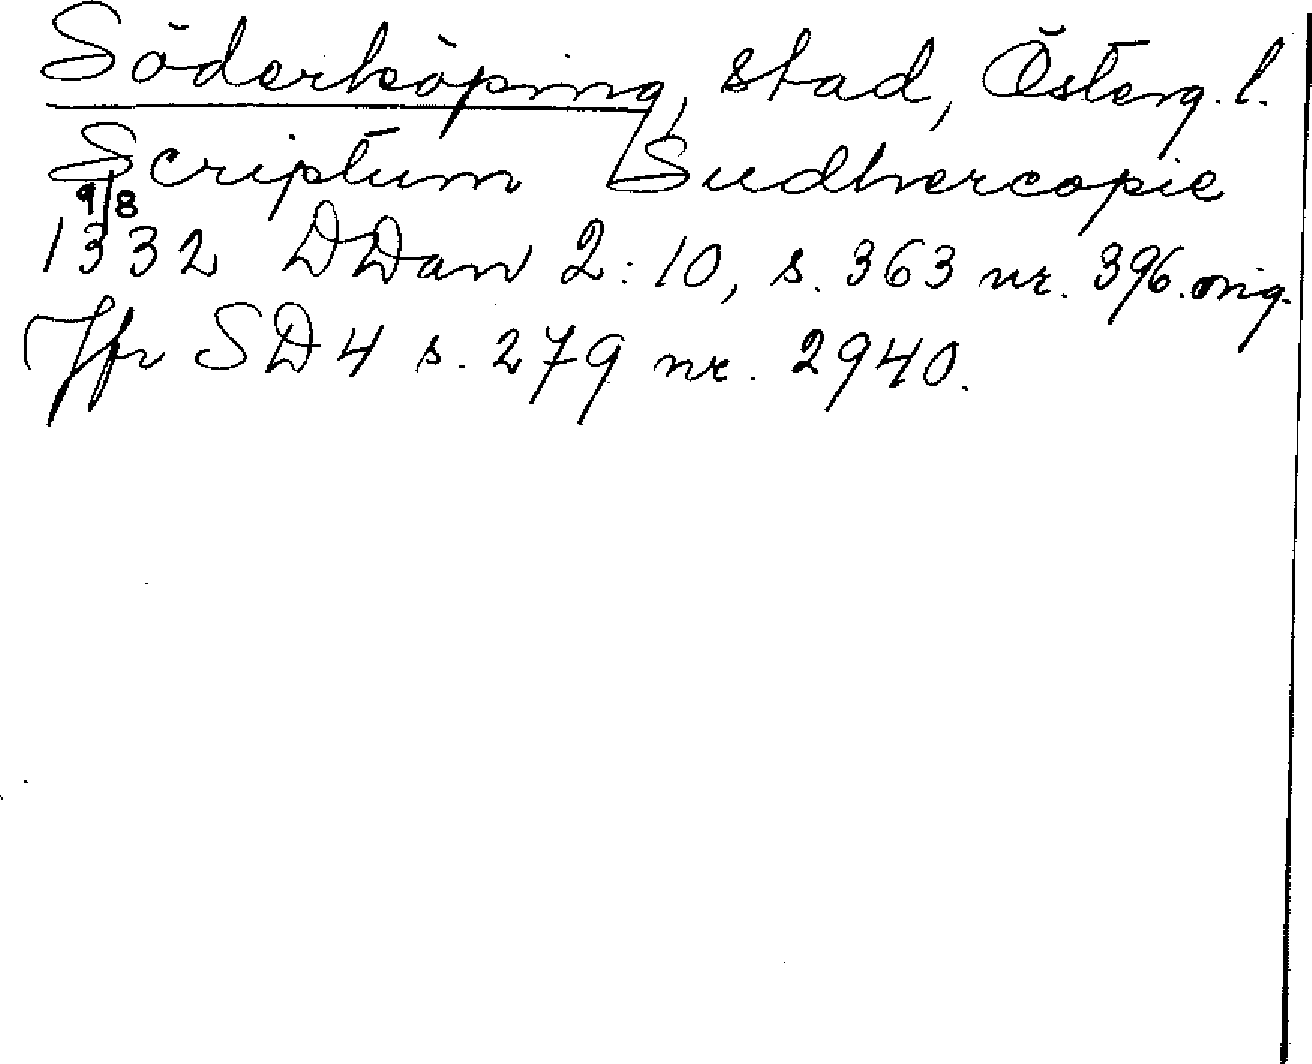 Söderköping, stad, Österg. l.
Scriptum Sudhercopie
9/8
1332 DDan 2:10, s. 363 nr. 396. orig.
Jfr SD 4 s. 279 nr. 2940.